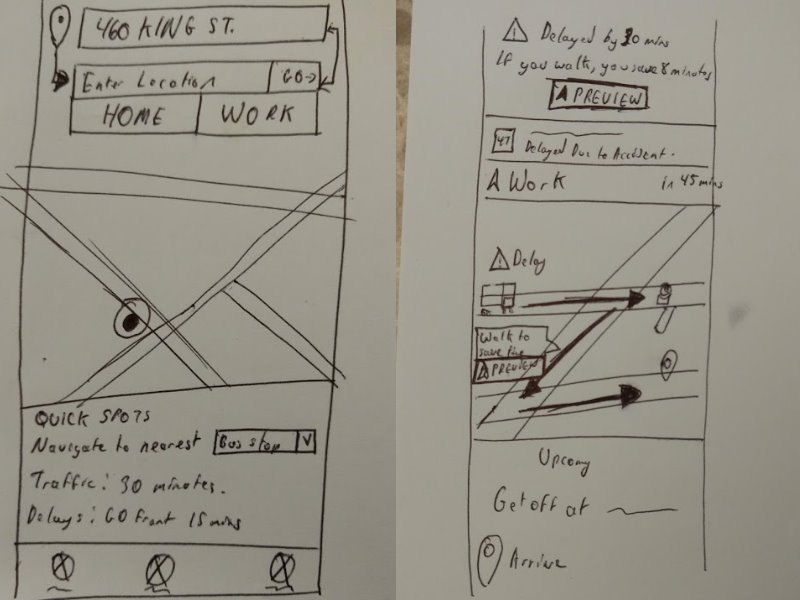 460 KING ST.
Enter Location GO→
HOME WORK
QUICK SPOTS
Navigate to nearest Bus stop V
Traffic: 30 minutes.
Delays: GO Front 15 mins
Delayed by 30 mins
If you walk, you save 8 minutes
PREVIEW
47 Delayed Due to Accident.
Work in 45 mins
Delay
Walk to
save time
PREVIEW
Upcomy
Get off at
Arrive